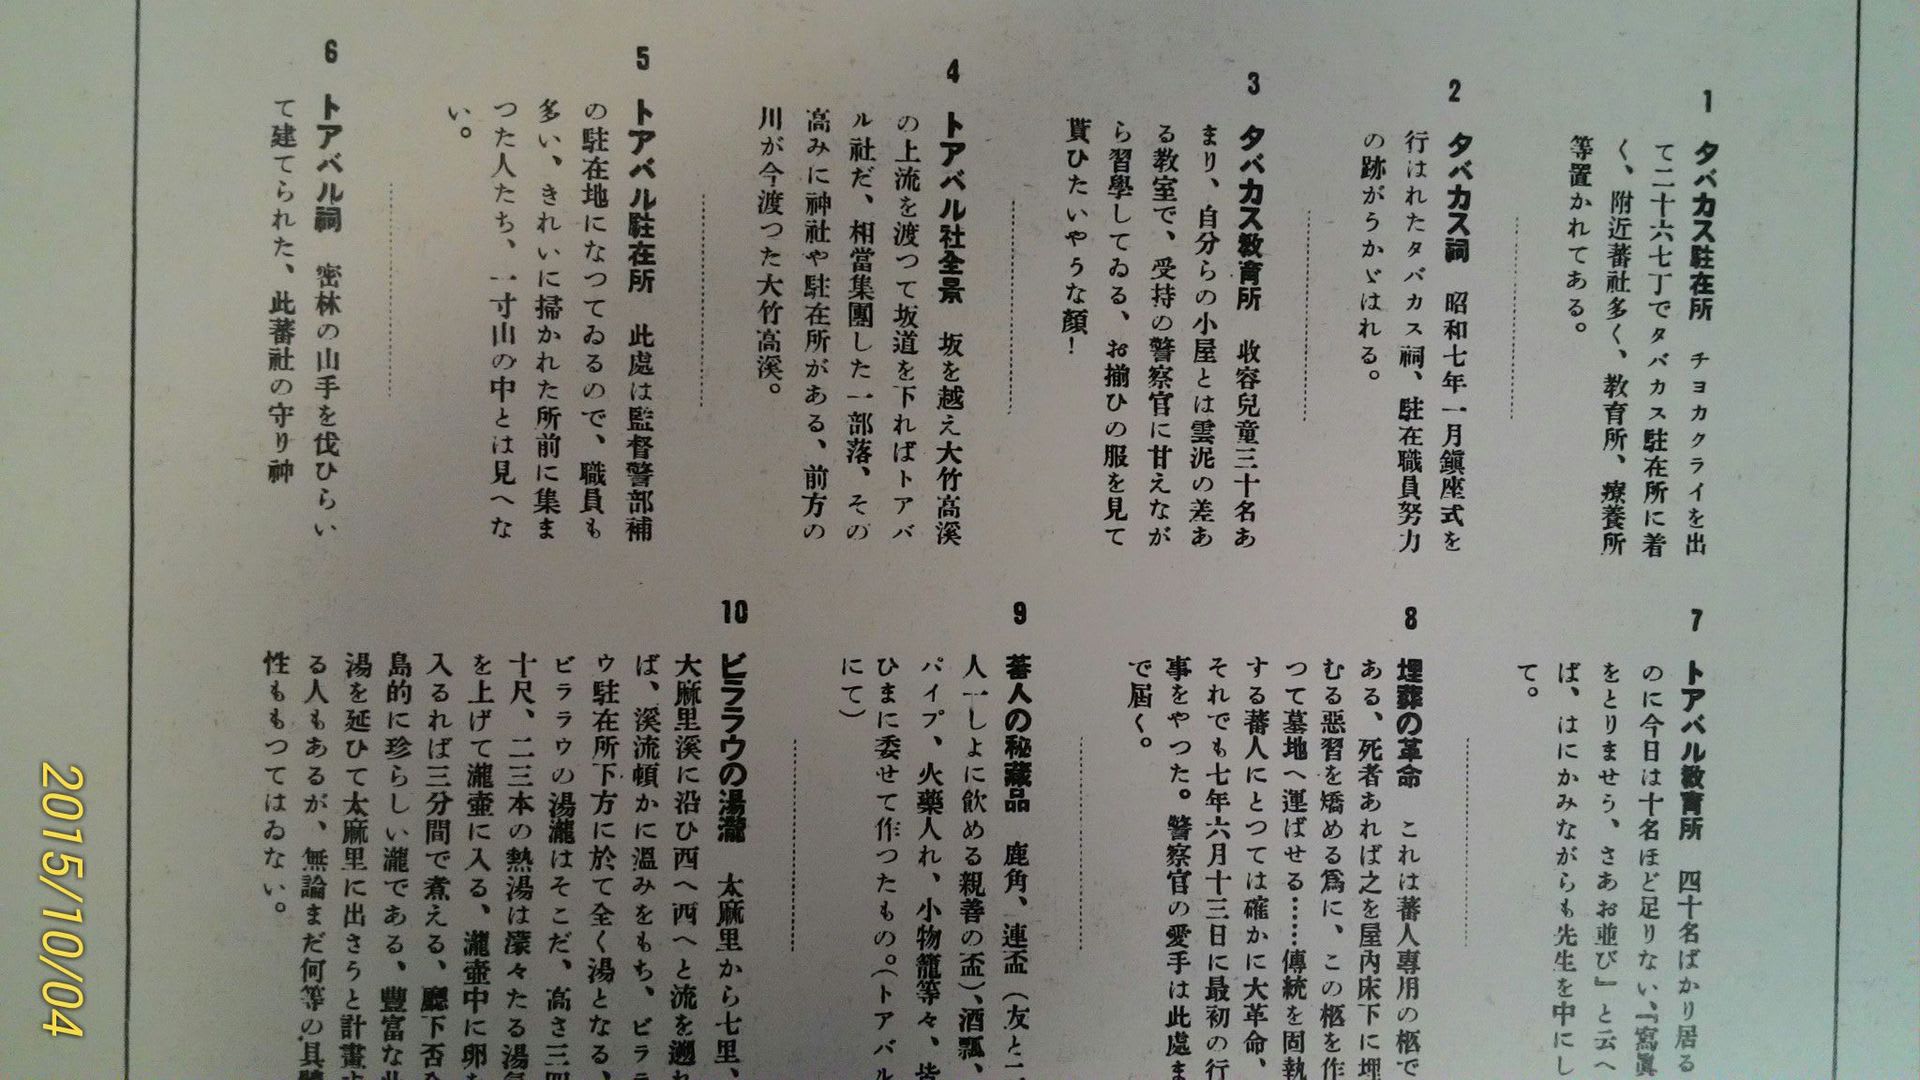 1
タバカス駐在所　チヨカクライを出
て二十六七丁でタバカス駐在所に着
く、附近蕃社多く、教育所、療養所
等置かれてある。
2
タバカス祠　昭和七年一月鎭座式を
行はれたタバカス祠、駐在職員努力
の跡がうかゞはれる。
3
タバカス教育所　收容兒童三十名あ
まり、自分らの小屋とは雲泥の差あ
る教室で、受持の警察官に甘えなが
ら習學してゐる、お揃ひの服を見て
貰ひたいやうな顏！
4
トアバル社全景　坂を越え大竹高溪
の上流を渡つて坂道を下ればトアバ
ル社だ、相當集團した一部落、その
高みに神社や駐在所がある、前方の
川が今渡つた大竹高溪。
5
トアバル駐在所　此處は監督警部補
の駐在地になつてゐるので、職員も
多い、きれいに掃かれた所前に集ま
つた人たち、一寸山の中とは見へな
い。
6
トアバル祠　密林の山手を伐ひらい
て建てられた、此蕃社の守り神
7
トアバル教育所　四十名ばかり居る
のに今日は十名ほど足りない、『寫眞
をとりませう、さあお並び』と云へ
ば、はにかみながらも先生を中にし
て。
8
埋葬の革命　これは蕃人專用の柩で
ある、死者あれば之を屋內床下に埋
むる惡習を矯める爲に、この柩を作
つて墓地へ運ばせる……傳統を固執
する蕃人にとつては確かに大革命、
それでも七年六月十三日に最初の行
事をやつた。警察官の愛手は此處ま
で屆く。
9
蕃人の秘藏品　鹿角、連盃（友と二
人一しよに飲める親善の盃）、酒瓢、
パイプ、火藥人れ、小物籠等々、皆
ひまに委せて作つたもの。（トアバル
にて）
10
ビララウの湯瀧　太麻里から七里、
大麻里溪に沿ひ西へ西へと流を遡れ
ば、溪流頓かに溫みをもち、ビララ
ウ駐在所下方に於て全く湯となる、
ビララウの湯瀧はそこだ、高さ三四
十尺、二三本の熱湯は濛々たる湯氣
を上げて瀧壺に入る、瀧壺中に卵を
入るれば三分間で煮える、廳下否全
島的に珍らしい瀧である、豐富な此
湯を延ひて太麻里に出さうと計畫す
る人もあるが、無論まだ何等の具體
性ももつてはゐない。
2015/10/04